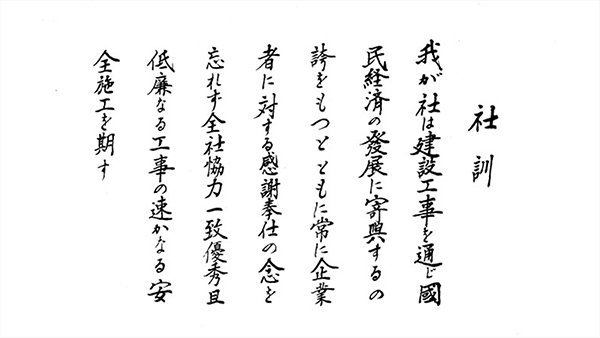 社訓
我が社は建設工事を通じ國
民経済の發展に寄與するの
誇をもつとともに常に企業
者に対する感謝奉仕の念を
忘れず全社協力一致優秀且
低廉なる工事の速かなる安
全施工を期す